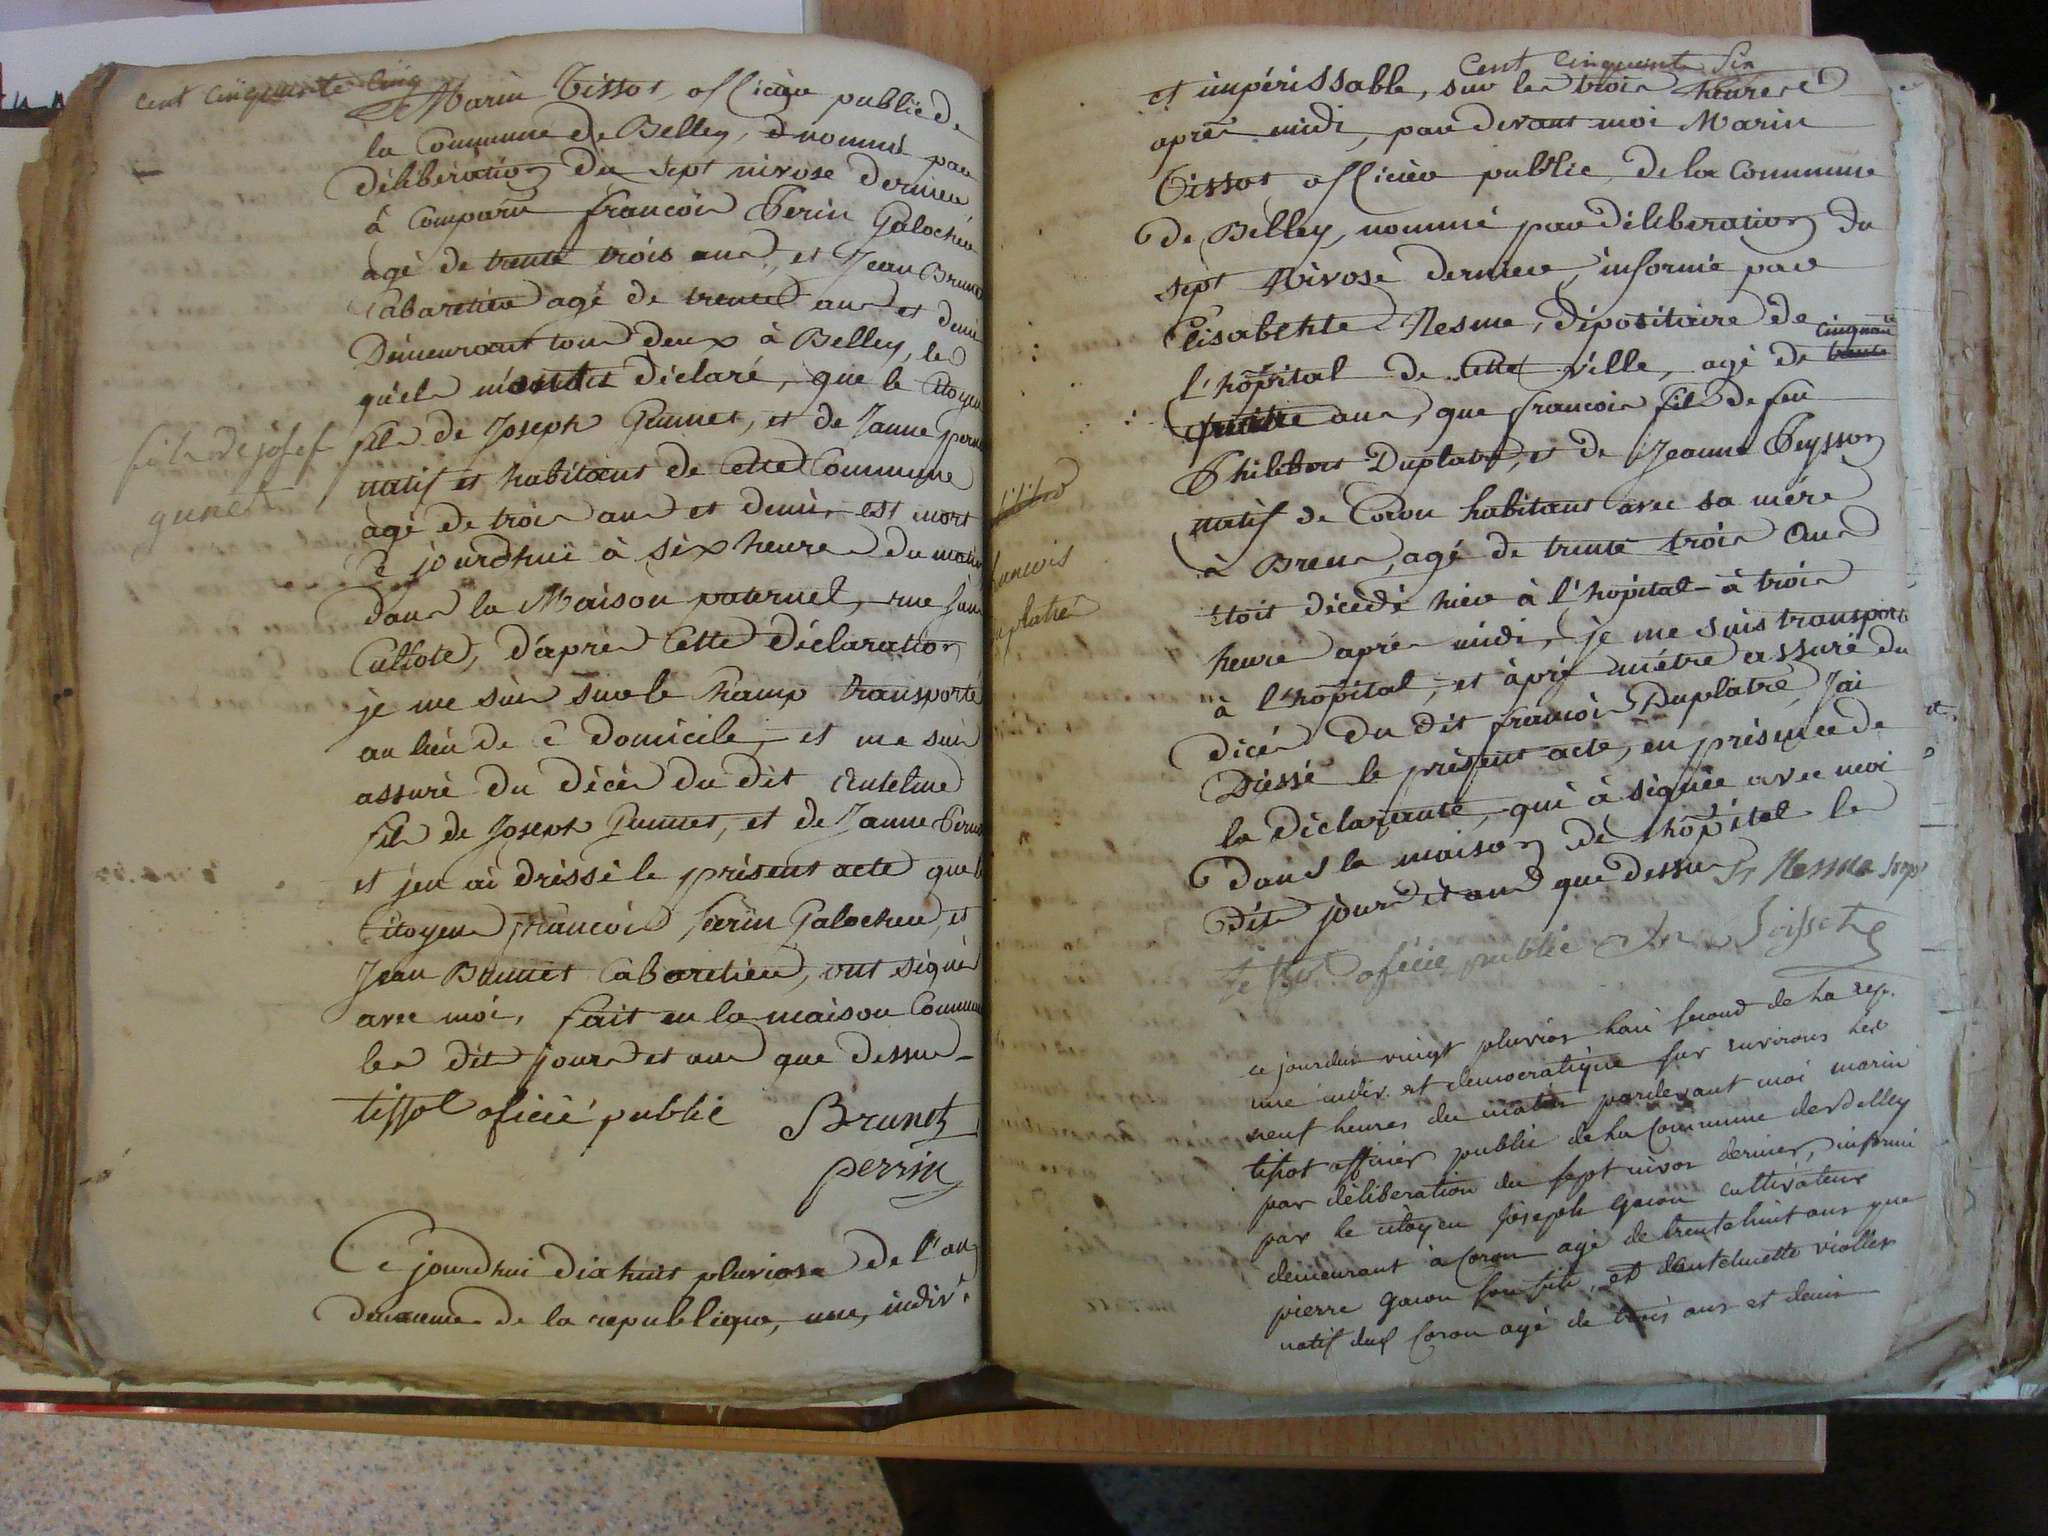 cent cinquante cinq
Marin Tissot, officier public de
la Commune de Belley, nommé par
déliberation du sept nivose dernier
à Comparu francois Perin Galocher
agé de trente trois ans, et Jean Brunet
Cabaretier agé de trente ans et demi
Demeurant tous deux à Belley, les
quels m'ont déclaré, que le Citoyen
fils de Joseph Gunnet, et de Janne
natif et habitant de Cette Commune
agé de trois ans et demi, est mort
Ce jourdhui à six heures du matin
dans la Maison paternel, rue sans
Culfote, d'aprés Cette déclaration
je me suis sur le Champ transporté
au lieu de ce domicile, et me suis
assuré du décés du dit Antelme
fils de Joseph Gunnet, et de Janne
et j'en ai dréssé le présent acte que
Citoyens francois Perin Galocheur, et
Jean Brunet Cabaretier, ont signé
avec moi, fait en la maison Commune
les dit jours et an que dessus
tissot oficié public Brunet
perrin
fils de josef
gunet
Ce jourdhui dix huit pluviose de l'an
deuxieme de la république, une, indiv.
cent cinquante six
et impérissable, sur les trois heures
aprés midi, par devant moi Marin
Tissot officier public de la Commune
de Belley, nommé par déliberation du
sept Nivose dernier, informé par
Elisabethte Nesme, dépositaire de
l'hôpital de Cette ville, agé de trente cinquante
quatre ans, que francois fils de feu
Philibert Duplatre, et de Jeanne Peysson
natif de Coron habitant avec sa mére
à Brens, agé de trente trois Ans
étoit décédé hier à l'hôpital à trois
heure aprés midi, je me suis transporté
à l'hôpital, et àprés métre assuré du
décés du dit francois Duplatre, J'ai
Dréssé le présent acte, en présence de
la déclarante, qui à signée avec moi
Dans la maison de l'hôpital les
dits jours et ans que dessus Sr Nesme
tissot oficié public
francois
duplatre
ce jourdui vingt pluvios lan second de la rep.
une indiv. et democratique sur environs les
neuf heures du matin pardevant moi marin
tissot officier public de la Commune de Belley
par déliberation du sept nivos dernier, informé
par le citoyen joseph gacon cultivateur
demeurant à Coron agé de trente huit ans que
pierre gacon son fils, et d'antelmette viollet
natif dud Coron agé de trois ans et demi